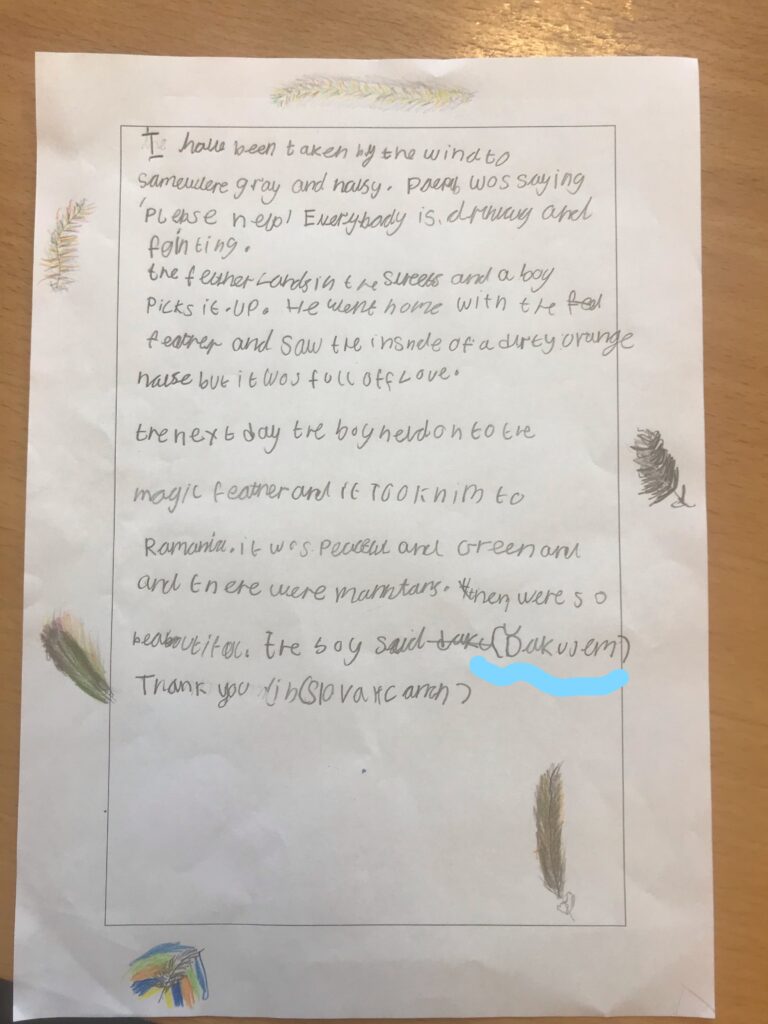 I have been taken by the wind to
samewere gray and naisy. was saying
'Please help! Everybody is drinking and
fghting.
the feather Lands in the streets and a boy
Picks it UP. He went home with the fed
feather and saw the insnde of a durty orange
hause but it was full off Love.
the next day the boy held on to the
magic feather and it Took him to
Ramania. it was Peaceful and Green and
and there were manntans. then were so
the boy said daku (Dakujem)
Thank you in (Slovak